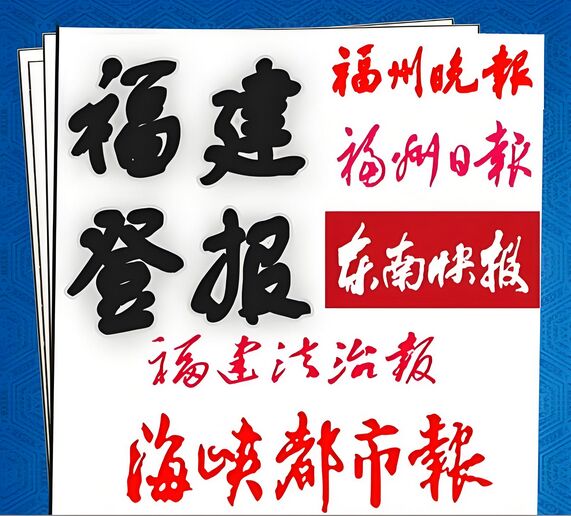 福建
登报
福州晚報
福州日報
东南快报
福建法治报
海峡都市報